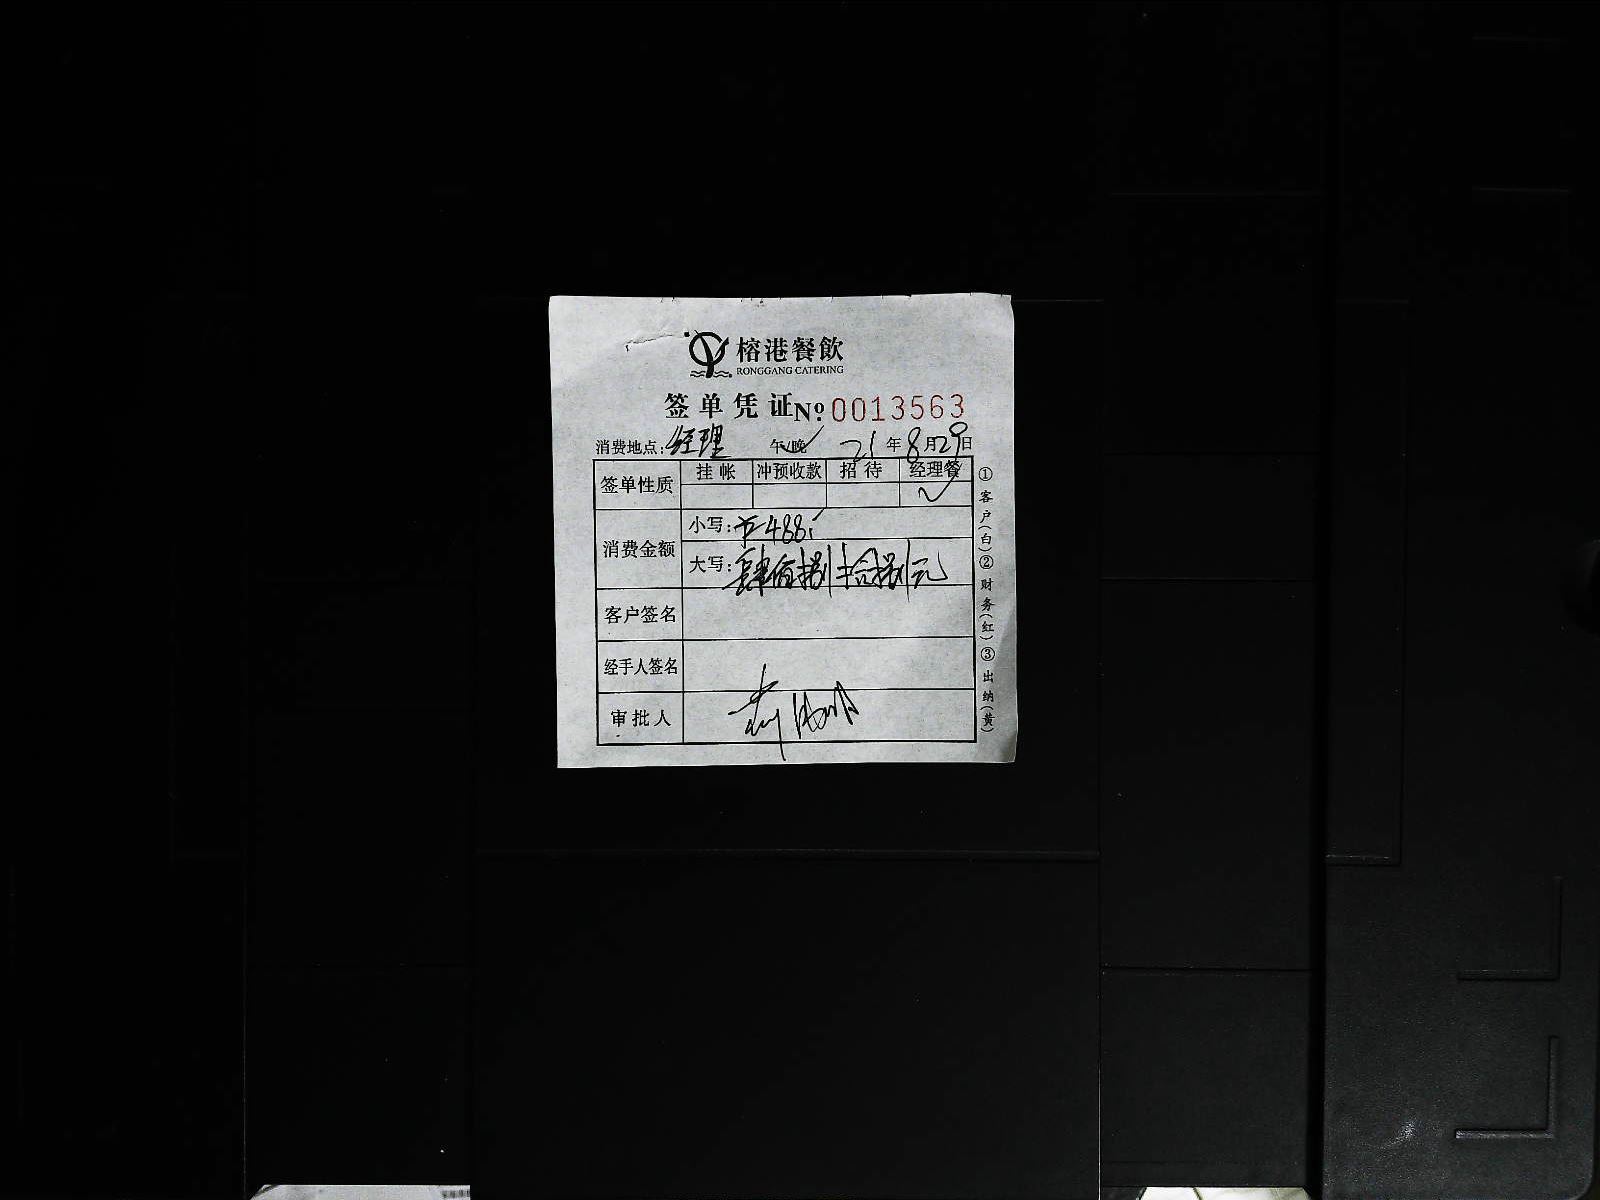 榕港餐飲
RONGGANG CATERING
签单凭证 Nº 0013563
消费地点：经理 午/晚✓ 21年8月29日
签单性质 挂帐 冲预收款 招待 经理餐
✓
消费金额 小写：488
大写：肆佰捌拾捌元
客户签名
经手人签名
审批人
①客户(白)②财务(红)③出纳(黄)